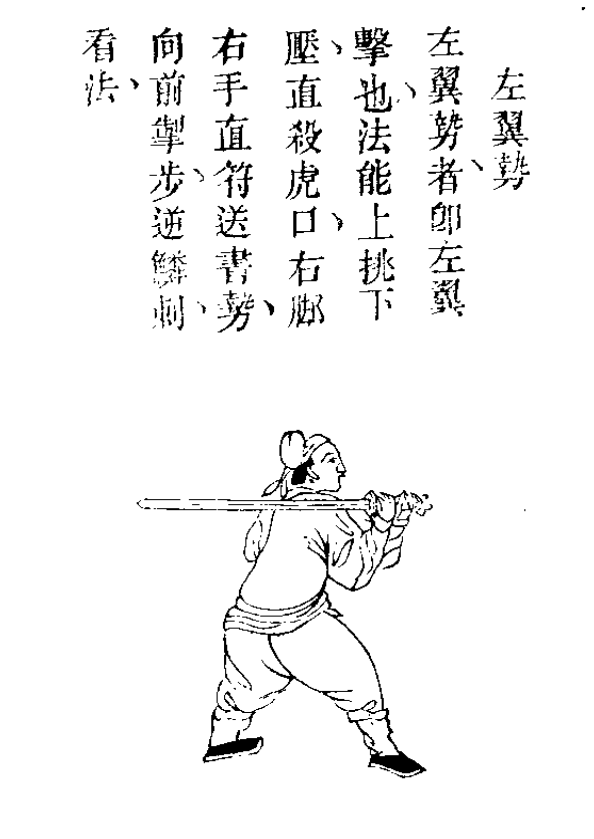 左翼勢
左翼勢者、即左翼
擊也、法能上挑下
壓、直殺虎口、右脚
右手直符送書勢、
向前掣步、逆鱗刺、
看法、